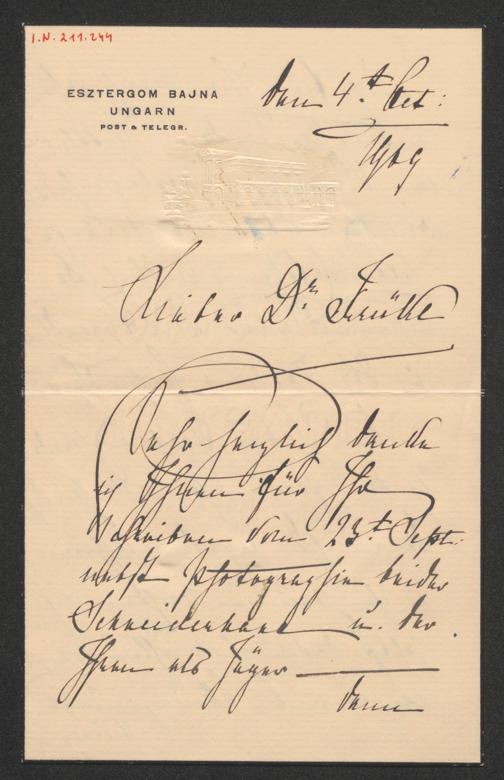 I.N. 211.244
ESZTERGOM BAJNA
UNGARN
POST & TELEGR.
den 4.t Oct:
1909
Lieber Dr.
Sehr herzlich danke
ich Ihnen für Ihr
Schreiben vom 23.t Sept.
nebst Photographien beider
u. der
Ihren als Jäger —
denn